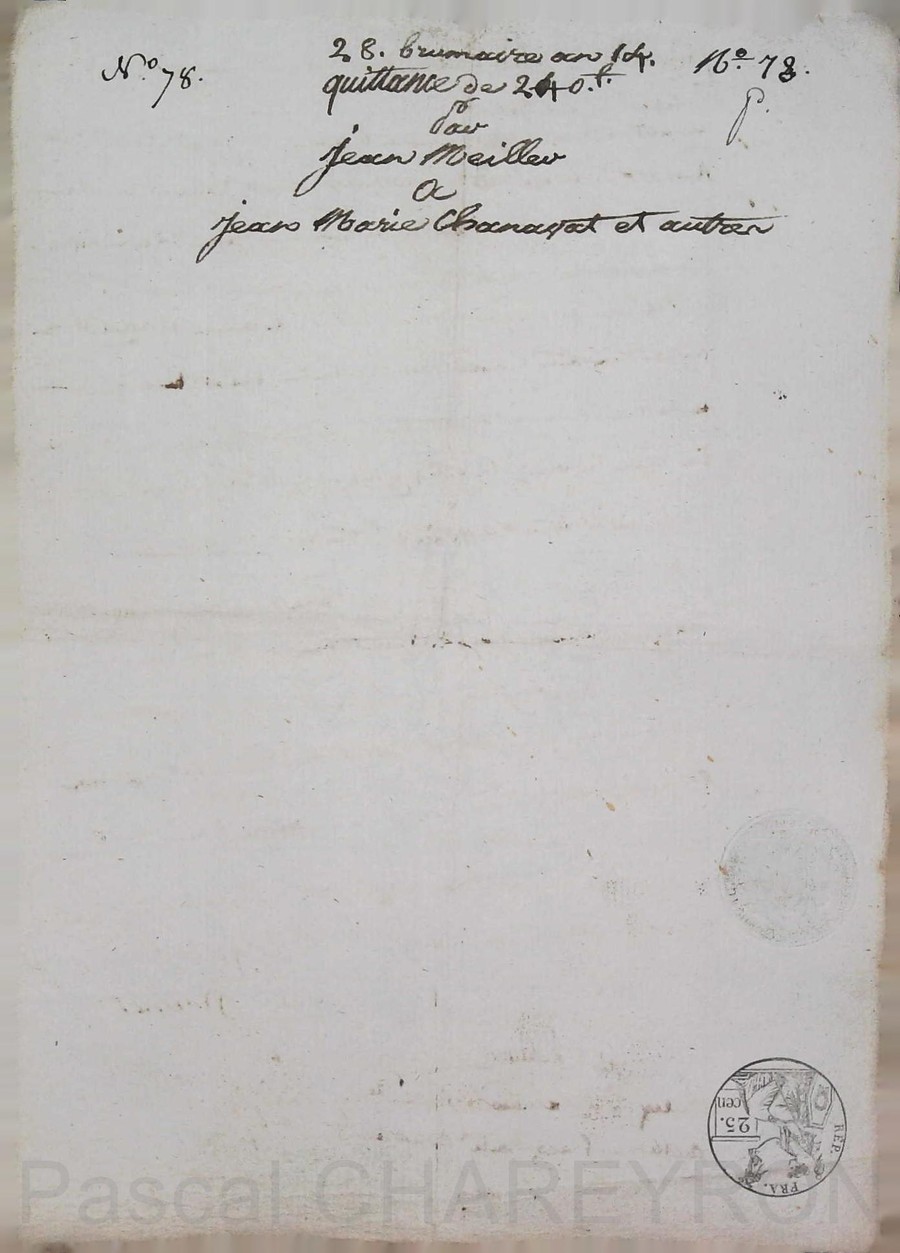 N.o 78.
28. brumaire an 14.
No. 78.
quittance de 240.tt
p.
Par
Jean Meiller
a
jean Marie Chanavat et autres
REP.
FRA.
25.
cen
Pascal CHAREYRON